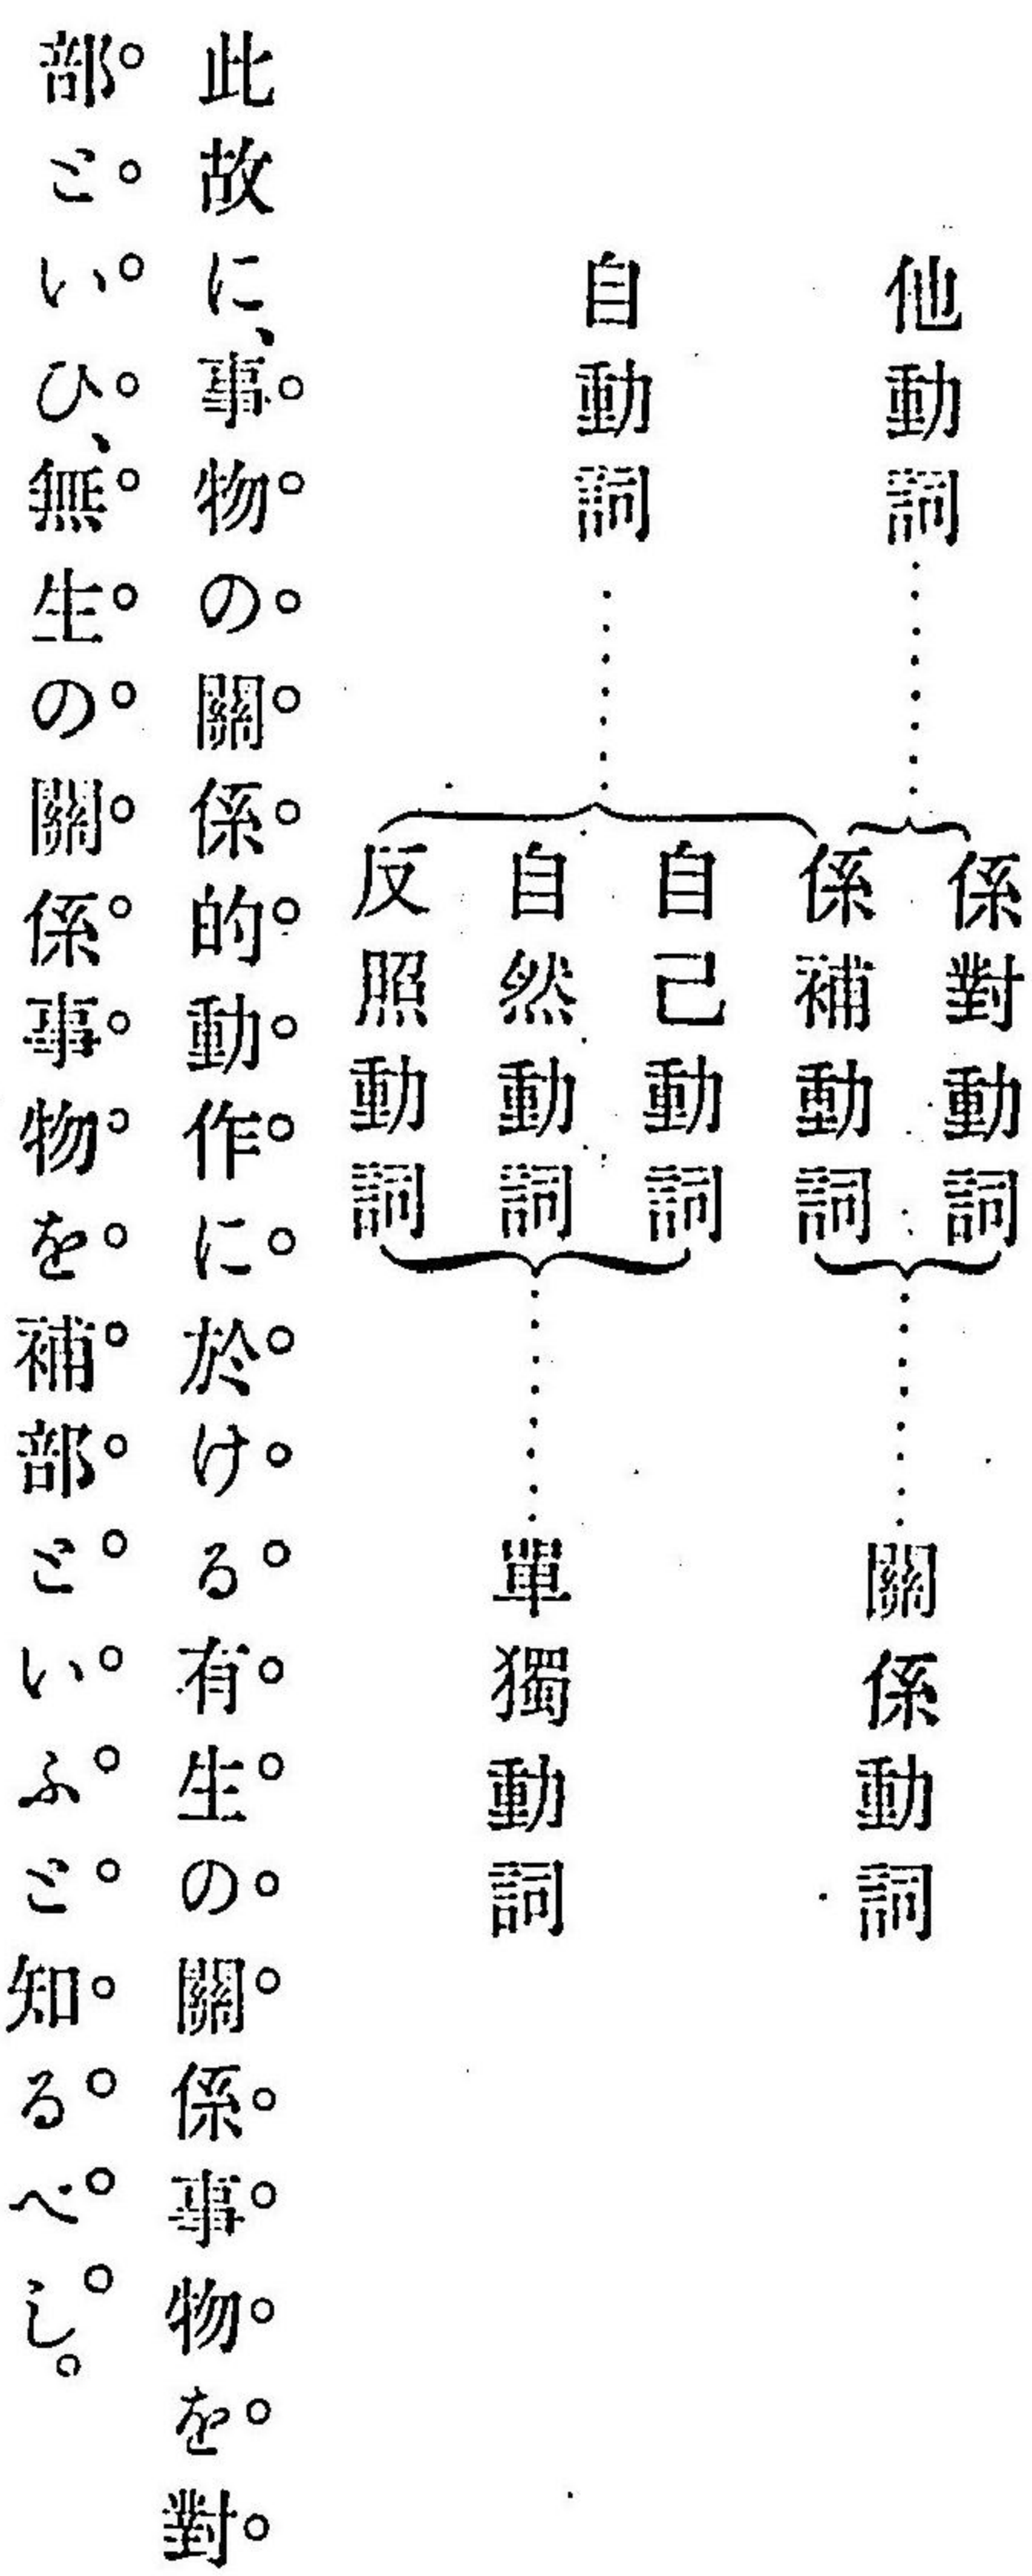 他動詞
自動詞
係對動詞
係補動詞
自己動詞
自然動詞
反照動詞
關係動詞
單獨動詞
此故に、事物の關係的動作に於ける有生の關係事物を對
部といひ、無生の關係事物を補部といふと知るべし。